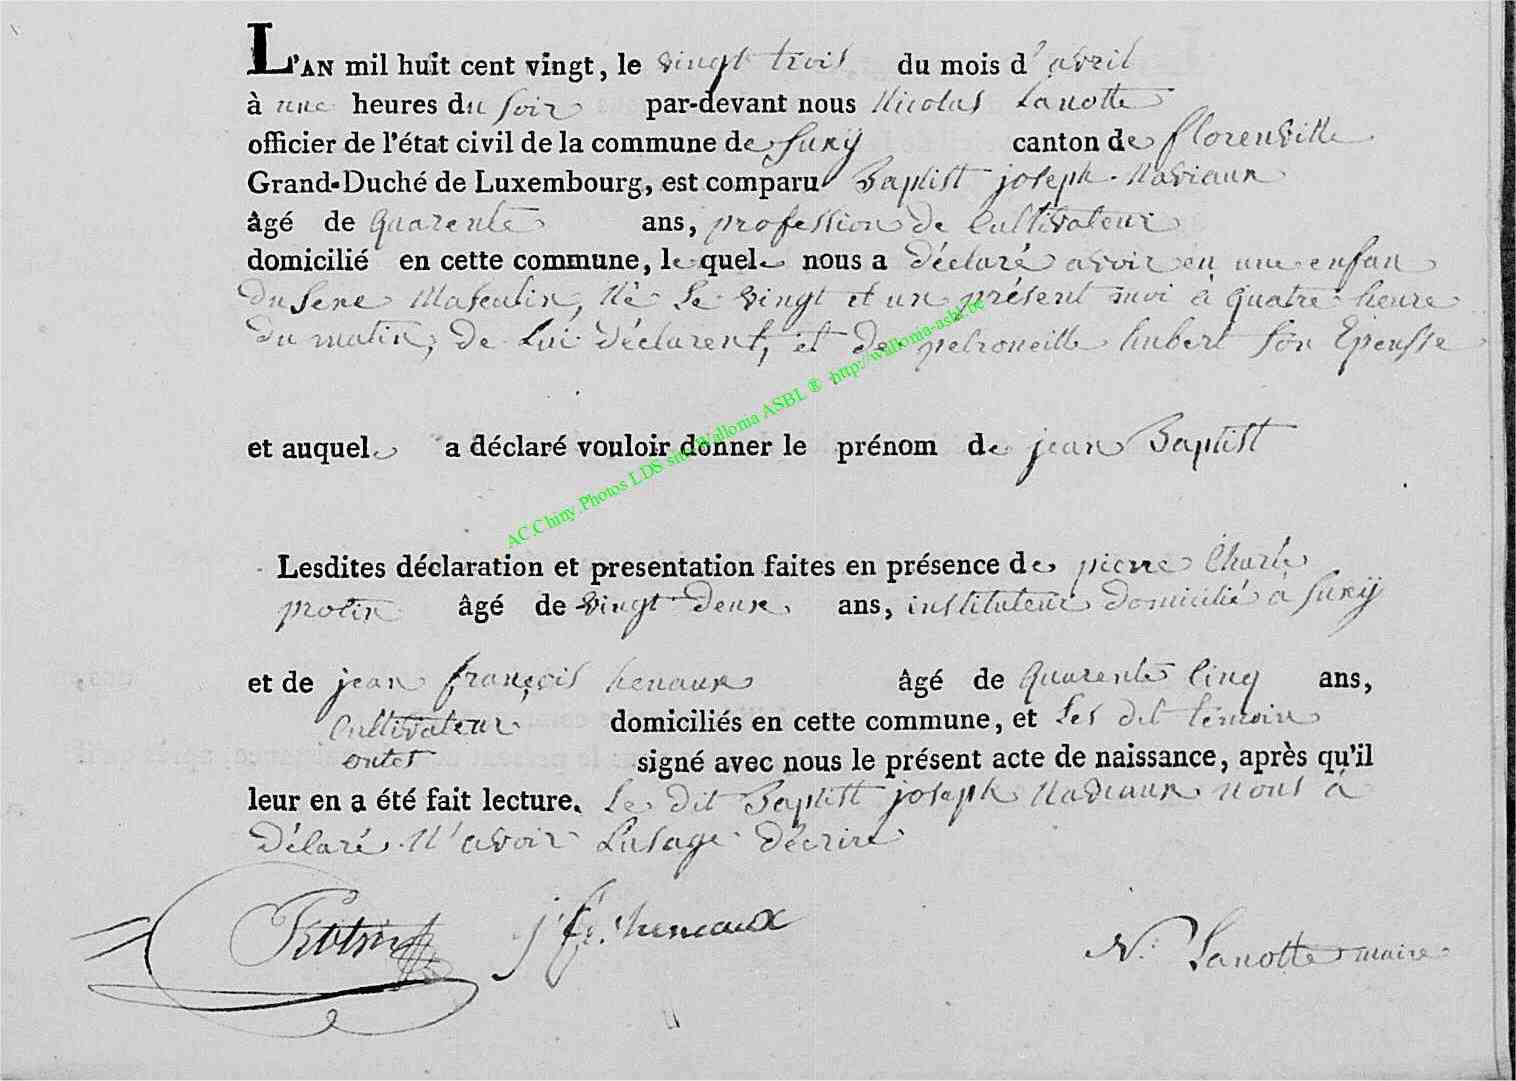 L'AN mil huit cent vingt, le vingt trois du mois d'avril
à une heures du soir par-devant nous Nicolas Lanotte
officier de l'état civil de la commune de Suxÿ canton de florenville
Grand-Duché de Luxembourg, est comparu Baptist joseph Naviaux
âgé de quarente ans, profession de Cultivateur
domicilié en cette commune, lequel nous a déclaré avoir eu une enfan
du sexe Masculin, Né Le vingt et un présent moi à quatre heure
du matin, de Lui déclarent, et de petroneille hubert son Epeusse
et auquel a déclaré vouloir donner le prénom de jean Baptist
AC.Chiny.Photos LDS site Wallonia ASBL ® http://wallonia-asbl.be
Lesdites déclaration et presentation faites en présence de pierre Charle
protin âgé de vingt deux ans, instituteur domicilié à Suxÿ
et de jean françois henaux âgé de quarente Cinq ans,
Cultivateur domiciliés en cette commune, et Les dit temoin
ontet signé avec nous le présent acte de naissance, après qu'il
leur en a été fait lecture. Le dit Baptist joseph Naviaux nous à
délaré N'avoir Lusage décrire
Protin j f heneaux
N. Lanotte maire